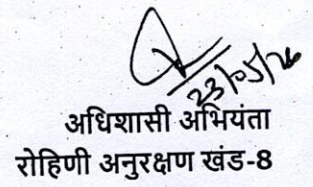 23/05/26
अधिशासी अभियंता
रोहिणी अनुरक्षण खंड-8